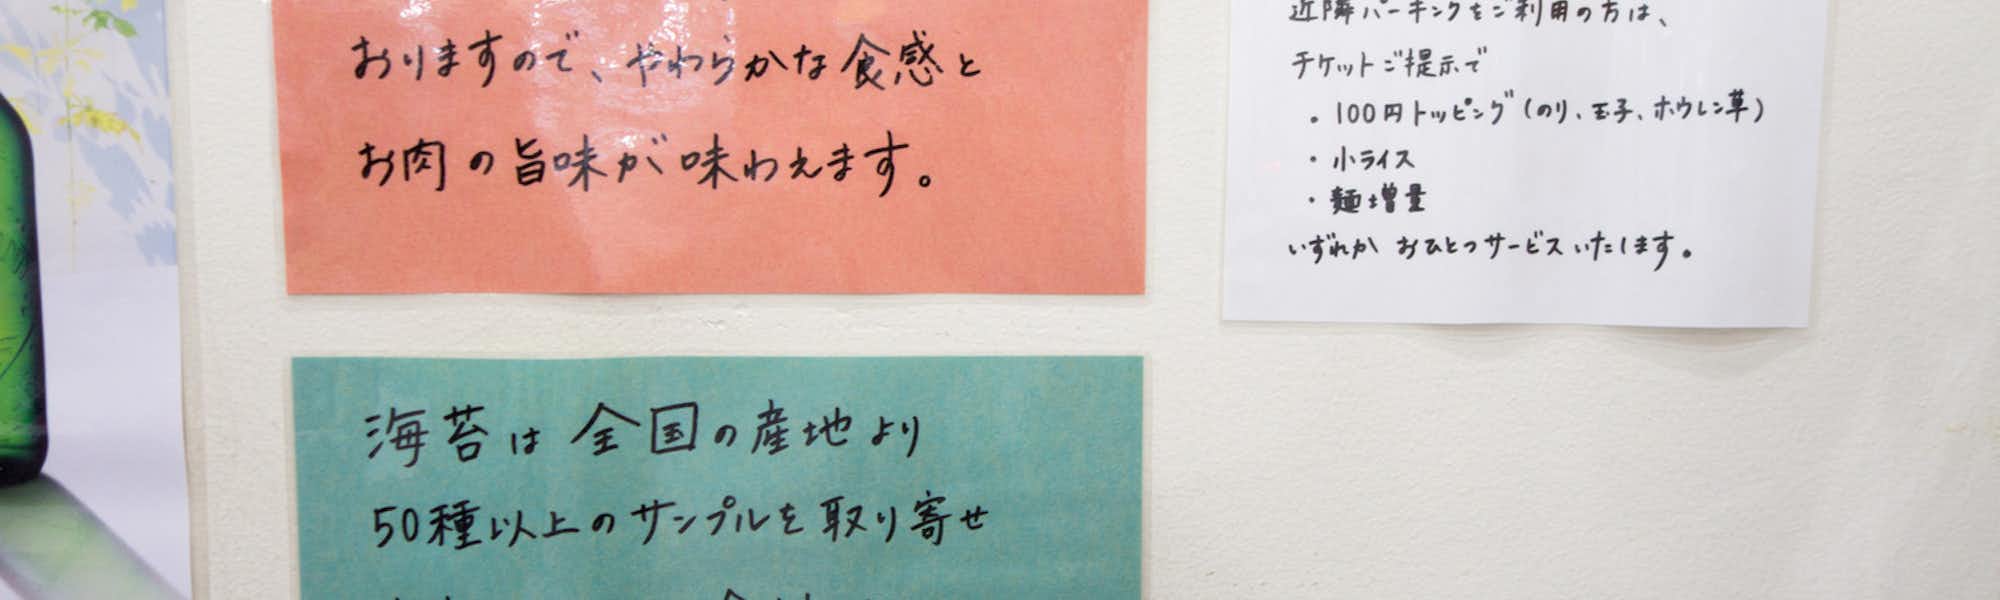 おりますので、やわらかな食感と
お肉の旨味が味わえます。
海苔は全国の産地より
50種以上のサンプルを取り寄せ
近隣パーキングをご利用の方は、
チケットご提示で
・100円トッピング(のり、玉子、ホウレン草)
・小ライス
・麺増量
いずれか おひとつサービスいたします。